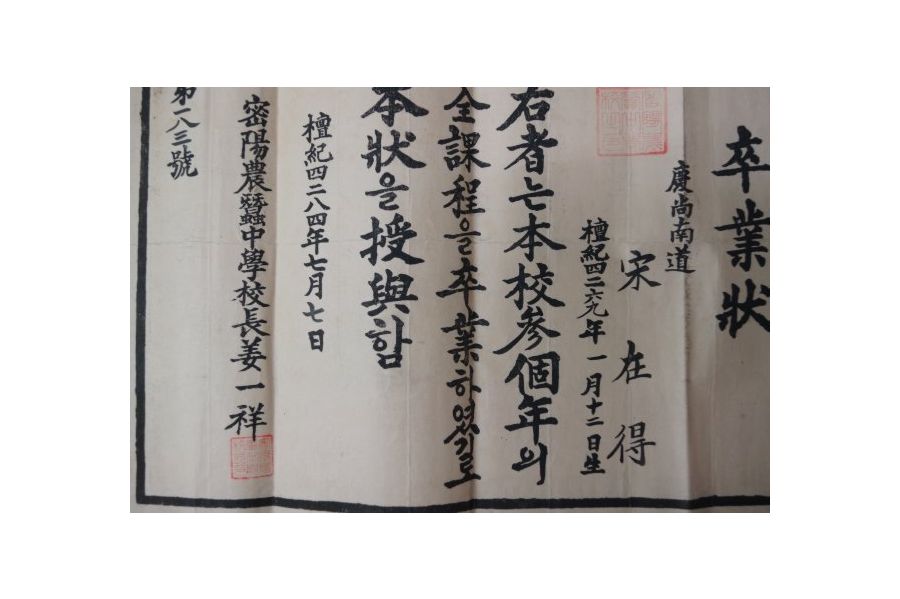 卒業狀
慶尚南道
宋在得
檀紀四二六九年一月十二日生
右者는本校参個年의
全課程을卒業하였기로
本狀을授與함
檀紀四二八四年七月七日
密陽農蠶中學校長姜一祥
第一八三號